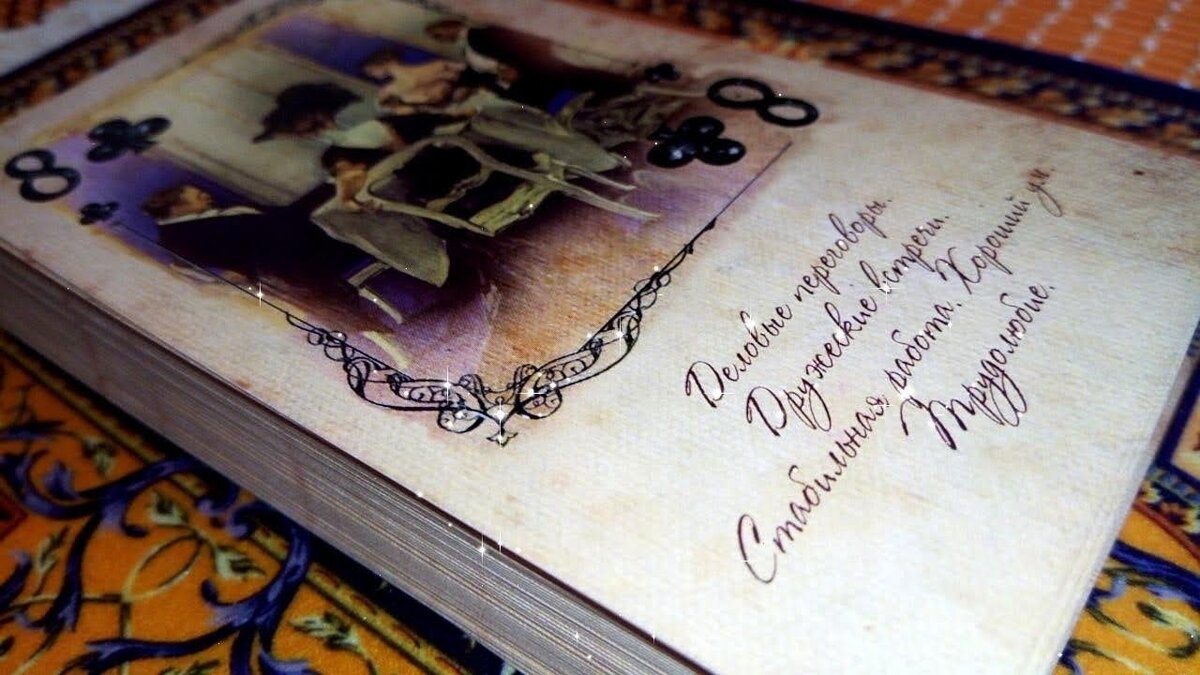 8
8
Деловые переговоры.
Дружеские встречи.
Стабильная работа. Хороший ум.
Трудолюбие.